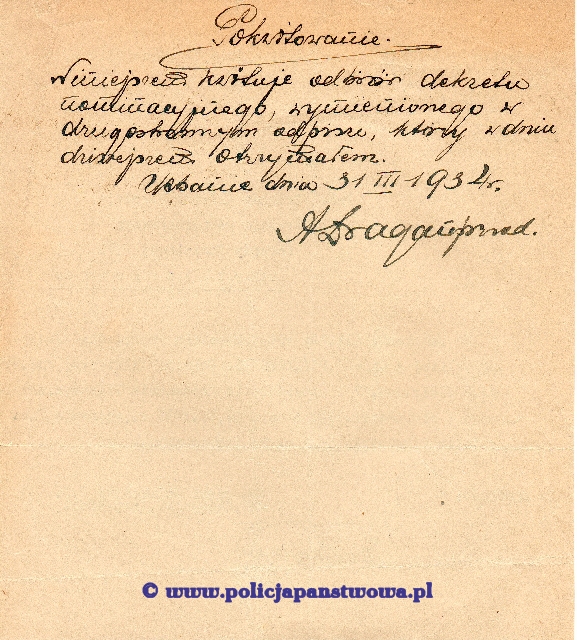 Pokwitowanie.
Niniejszem kwituję odbiór dekretu
nominacyjnego, wymienionego w
drugostronnym odpisie, który w dniu
dzisiejszem otrzymałem.
dnia 31 III 1934r.
A Dragan przod.
© www.policjapanstwowa.pl